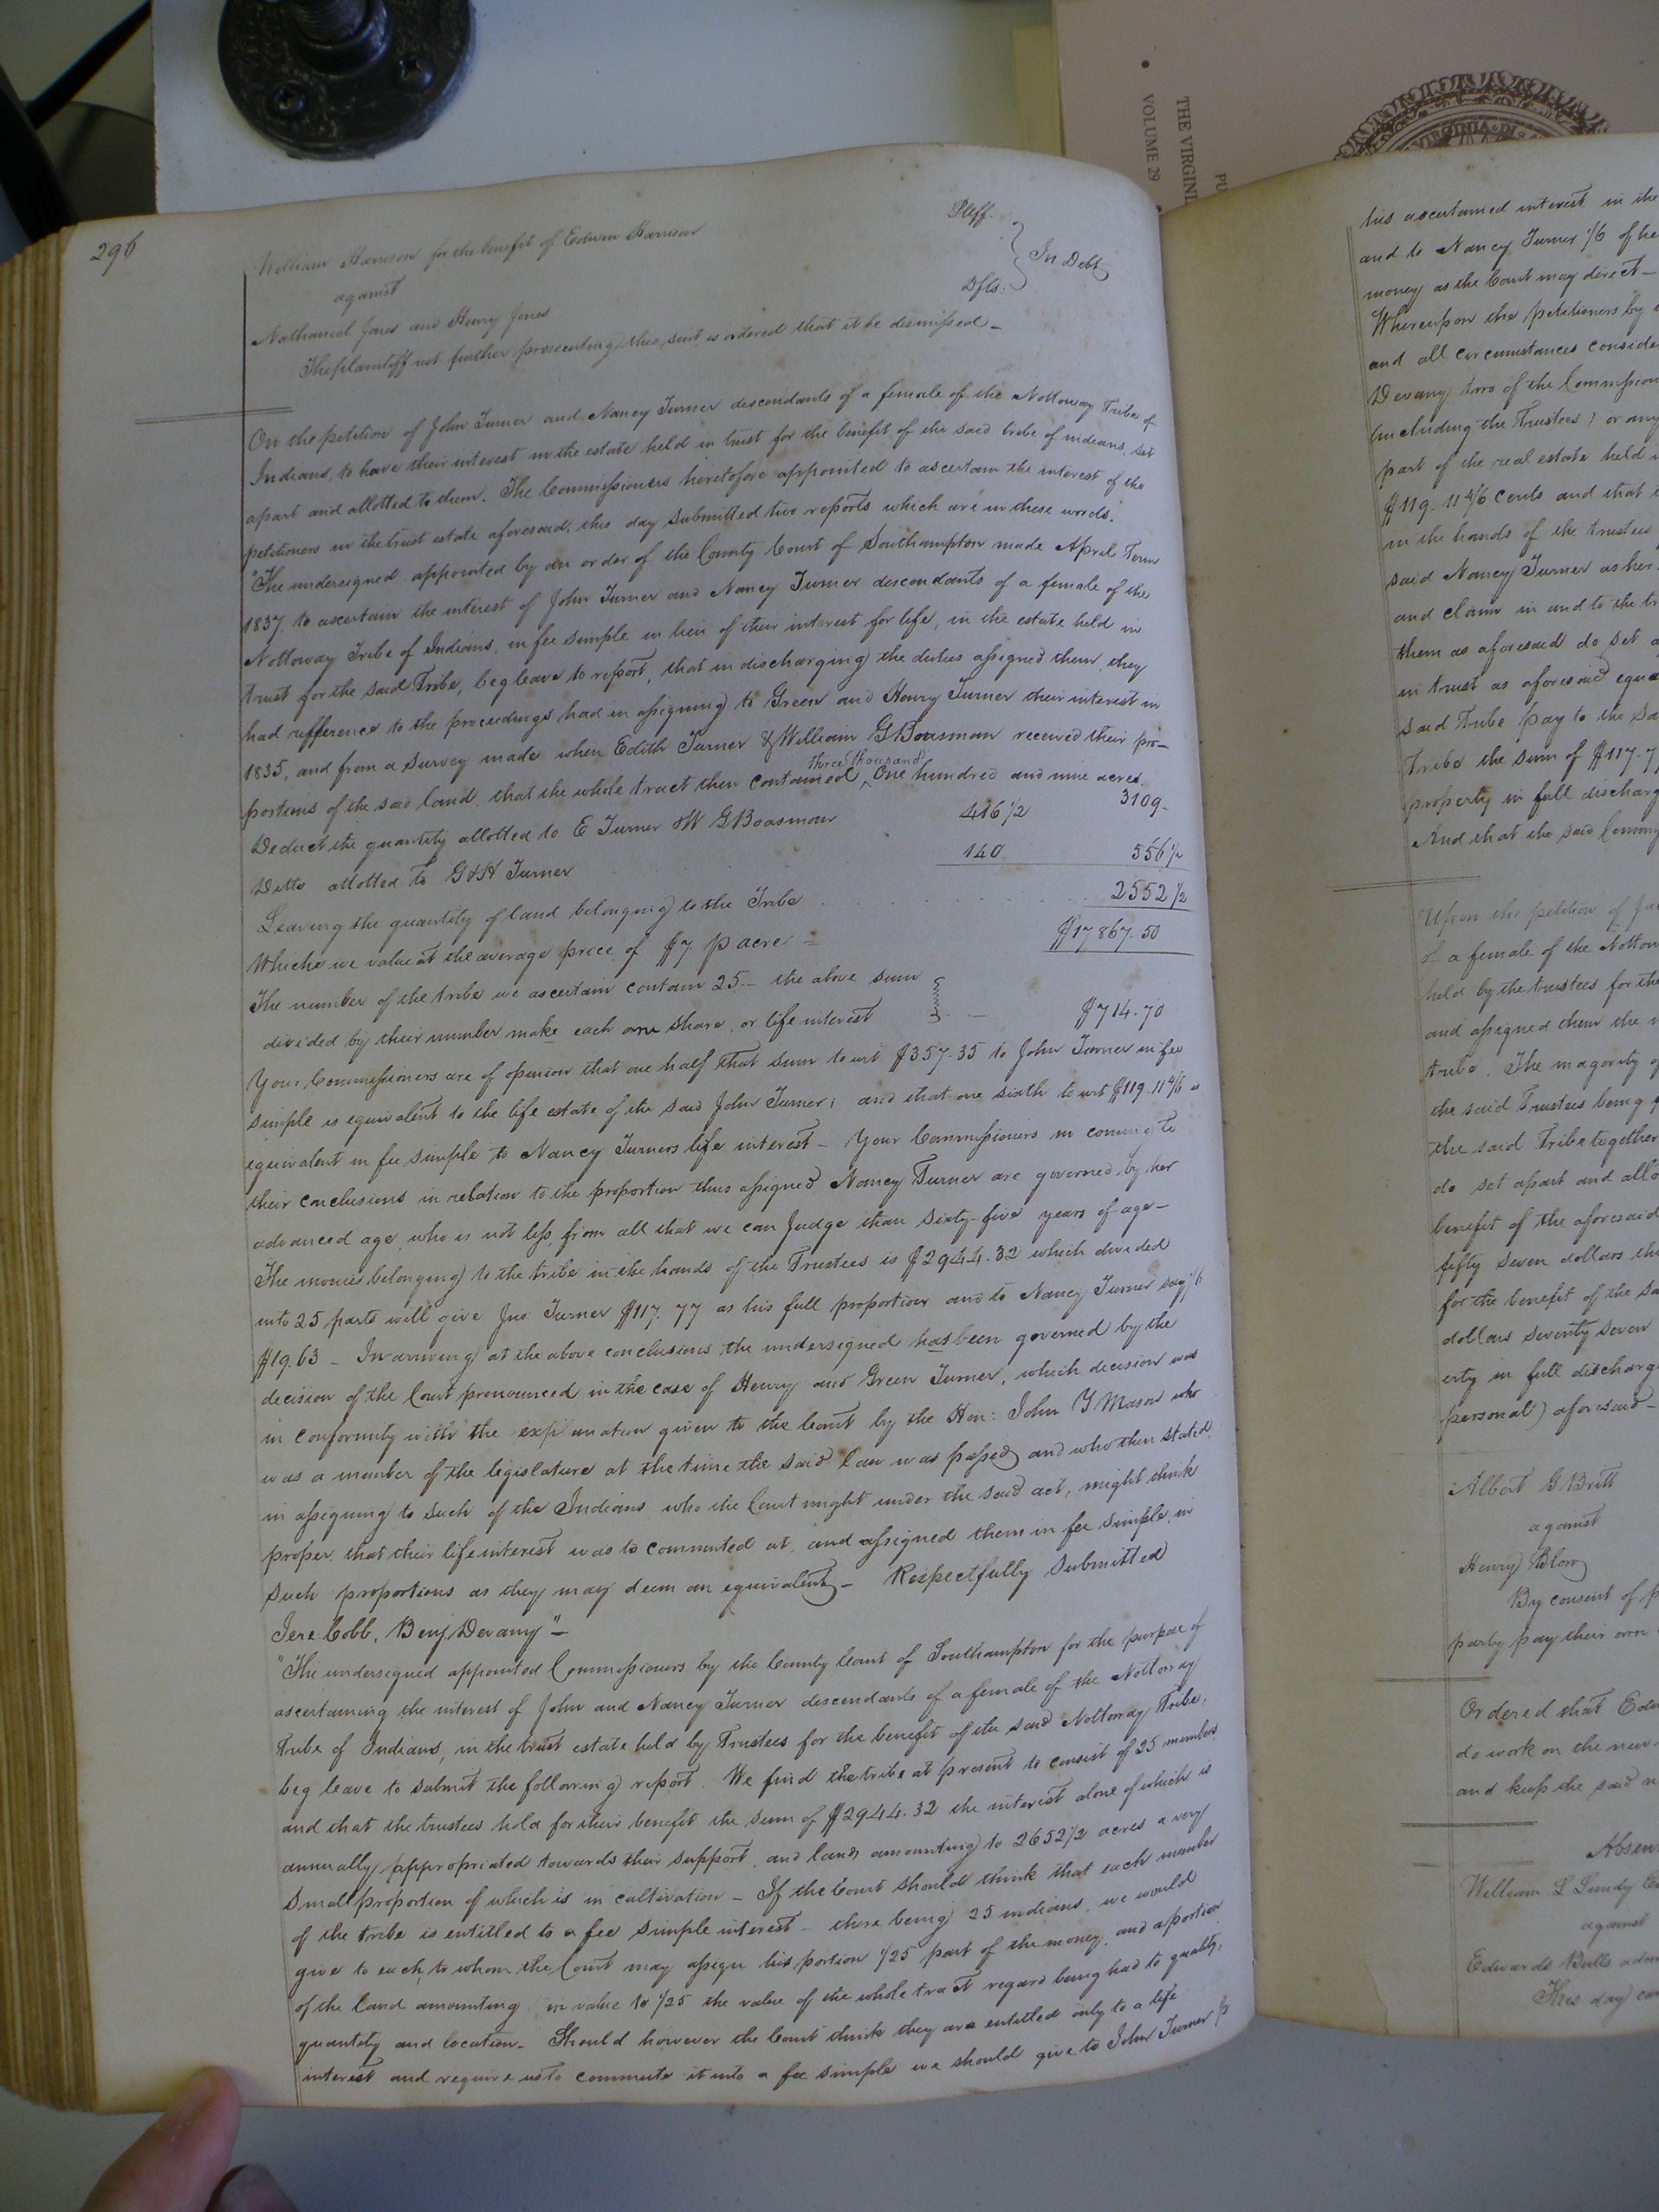 296
William Harrison for the benefit of Edwin Harrison Pltff.
against
In Debt
Nathaniel Jones and Henry Jones Dfts.
The plaintiff not further prosecuting this suit is ordered that it be dismissed –
On the petition of John Turner and Nancy Turner descendants of a female of the Nottoway Tribe of
Indians, to have their interest in the estate held in trust for the benefit of the said tribe of indians, set
apart and allotted to them. The Commissioners heretofore appointed to ascertain the interest of the
petitioners in the trust estate aforesaid, this day submitted two reports which are in these words.
"The undersigned appointed by an order of the County Court of Southampton made April Term
1837, to ascertain the interest of John Turner and Nancy Turner descendants of a female of the
Nottoway Tribe of Indians, in fee simple in lieu of their interest for life, in the estate held in
trust for the said Tribe, beg leave to report, that in discharging the duties assigned them, they
had refference to the proceedings had in assigning to Green and Henry Turner their interest in
1835, and from a survey made when Edith Turner & William G Boasman received their pro–
portions of the said land, that the whole tract then contained three thousand One hundred and nine acres 3109–
Deduct the quantity allotted to E Turner & W G Boasman 416 1/2
Ditto allotted to G & H Turner 140 556 1/2
Leaving the quantity of land belonging to the Tribe 2552 1/2
Which we value at the average price of $7. p acre = $17867.50
The number of the tribe we ascertain contain 25 – the above sum
divided by their number make each one share, or life interest – $714.70
Your Commissioners are of opinion that one half that sum to wit $357.35 to John Turner in fee
simple is equivalent to the life estate of the said John Turner; and that one sixth to wit $119.11 4/6 is
equivalent in fee simple to Nancy Turners life interest – Your Commissioners in coming to
their conclusions in relation to the proportion thus assigned Nancy Turner are governed by her
advanced age, who is not less, from all that we can Judge than sixty-five years of age –
The monies belonging to the tribe in the hands of the Trustees is $2944.32 which divided
into 25 parts will give Jno. Turner $117.77 as his full proportion and to Nancy Turner say 1/6
$19.63 – In arriving at the above conclusions the undersigned has been governed by the
decision of the Court pronounced in the case of Henry and Green Turner, which decision was
in conformity with the explanation given to the Court by the Hon: John Y Mason who
was a member of the legislature at the time the said law was passed and who then stated,
in assigning to such of the Indians who the Court might under the said act, might think
proper, that their life interest was to commuted at, and assigned them in fee simple, in
such proportions as they may deem an equivalent – Respectfully submitted
Jere: Cobb, Benj. Devany" –
"The undersigned appointed Commissioners by the County Court of Southampton for the purpose of
ascertaining the interest of John and Nancy Turner descendants of a female of the Nottoway
Tribe of Indians, in the trust estate held by Trustees for the benefit of the said Nottoway Tribe,
beg leave to submit the following report. We find the tribe at present to consist of 25 members
and that the trustees hold for their benefit the sum of $2944.32 the interest alone of which is
annually appropriated towards their support, and lands amounting to 2652 1/2 acres a very
small proportion of which is in cultivation – If the Court should think that each member
of the tribe is entitled to a fee simple interest – there being 25 indians, we would
give to each, to whom the Court may assign his portion 1/25 part of the money, and a portion
of the land amounting in value to 1/25 the value of the whole tract regard being had to quality,
quantity and location. Should however the Court think they are entitled only to a life
interest and require us to commute it into a fee simple we should give to John Turner 1/2
his ascertained interest in the
and to Nancy Turner 1/6 of he
money as the Court may direct –
Whereupon the petitioners by
and all circumstances conside
Devany two of the Commission
(including the Trustees) or any
part of the real estate held
$119.11 4/6 cents and that
in the hands of the trustees
said Nancy Turner as her
and claim in and to the tr
them as aforesaid do set a
in trust as aforesaid equa
said Tribe pay to the sa
Tribe the sum of $117.7
property in full discharg
And that the said Commi
Upon the petition of
of a female of the Nottow
held by the trustees for the
and assigned them the
tribe. The magority of
the said Trustees being
the said Tribe together
do set apart and allo
benefit of the aforesaid
fifty seven dollars thi
for the benefit of the sa
dollars seventy seven
erty in full discharge
personal) aforesaid –
Albert G Britt
against
Henry Blow
By consent of p
party pay their own
Ordered that Edw
do work on the new
and keep the said
Absen
William L Lundy
against
Edwards Butts adm
This day ca
THE VIRGINI
VOLUME 29
PU
VIRGINIA